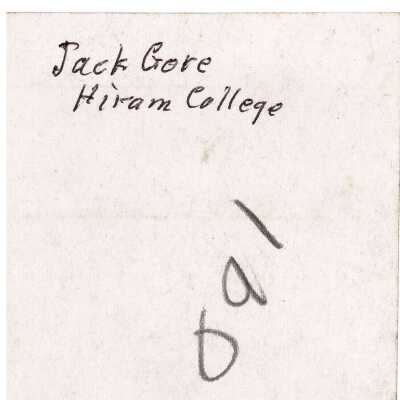 Jack Gore
Hiram College